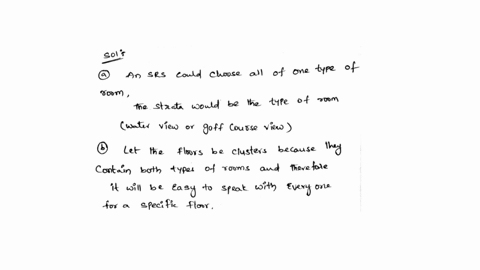 Sol:
(a) An SRS could choose all of one type of
room,
the strata would be the type of room
(water view or golf course view)
(b) Let the floors be clusters because they
contain both types of rooms and therefore
it will be easy to speak with every one
for a specific floor.